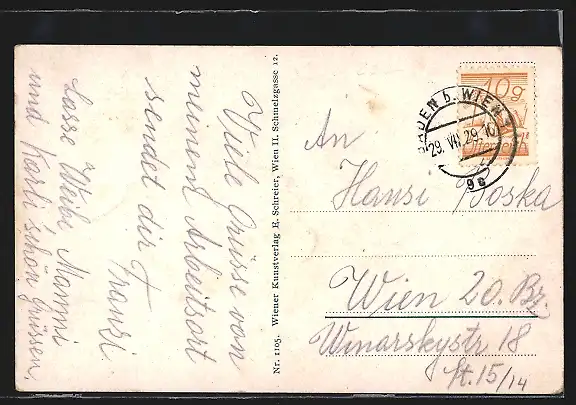 Viele Grüsse von
meinem Arbeitsort
sendet dir
Franzi.
Lasse Mammi
und Karli schön grüssen.
Nr. 1105. Wiener Kunstverlag E. Schreier, Wien II. Schmelzgasse 12.
An
Hansi Boska
Wien 20. Bz.
Winarskystr 18
St. 15/14
10g
BADEN b. WIEN
29. VII. 29. 10
9c